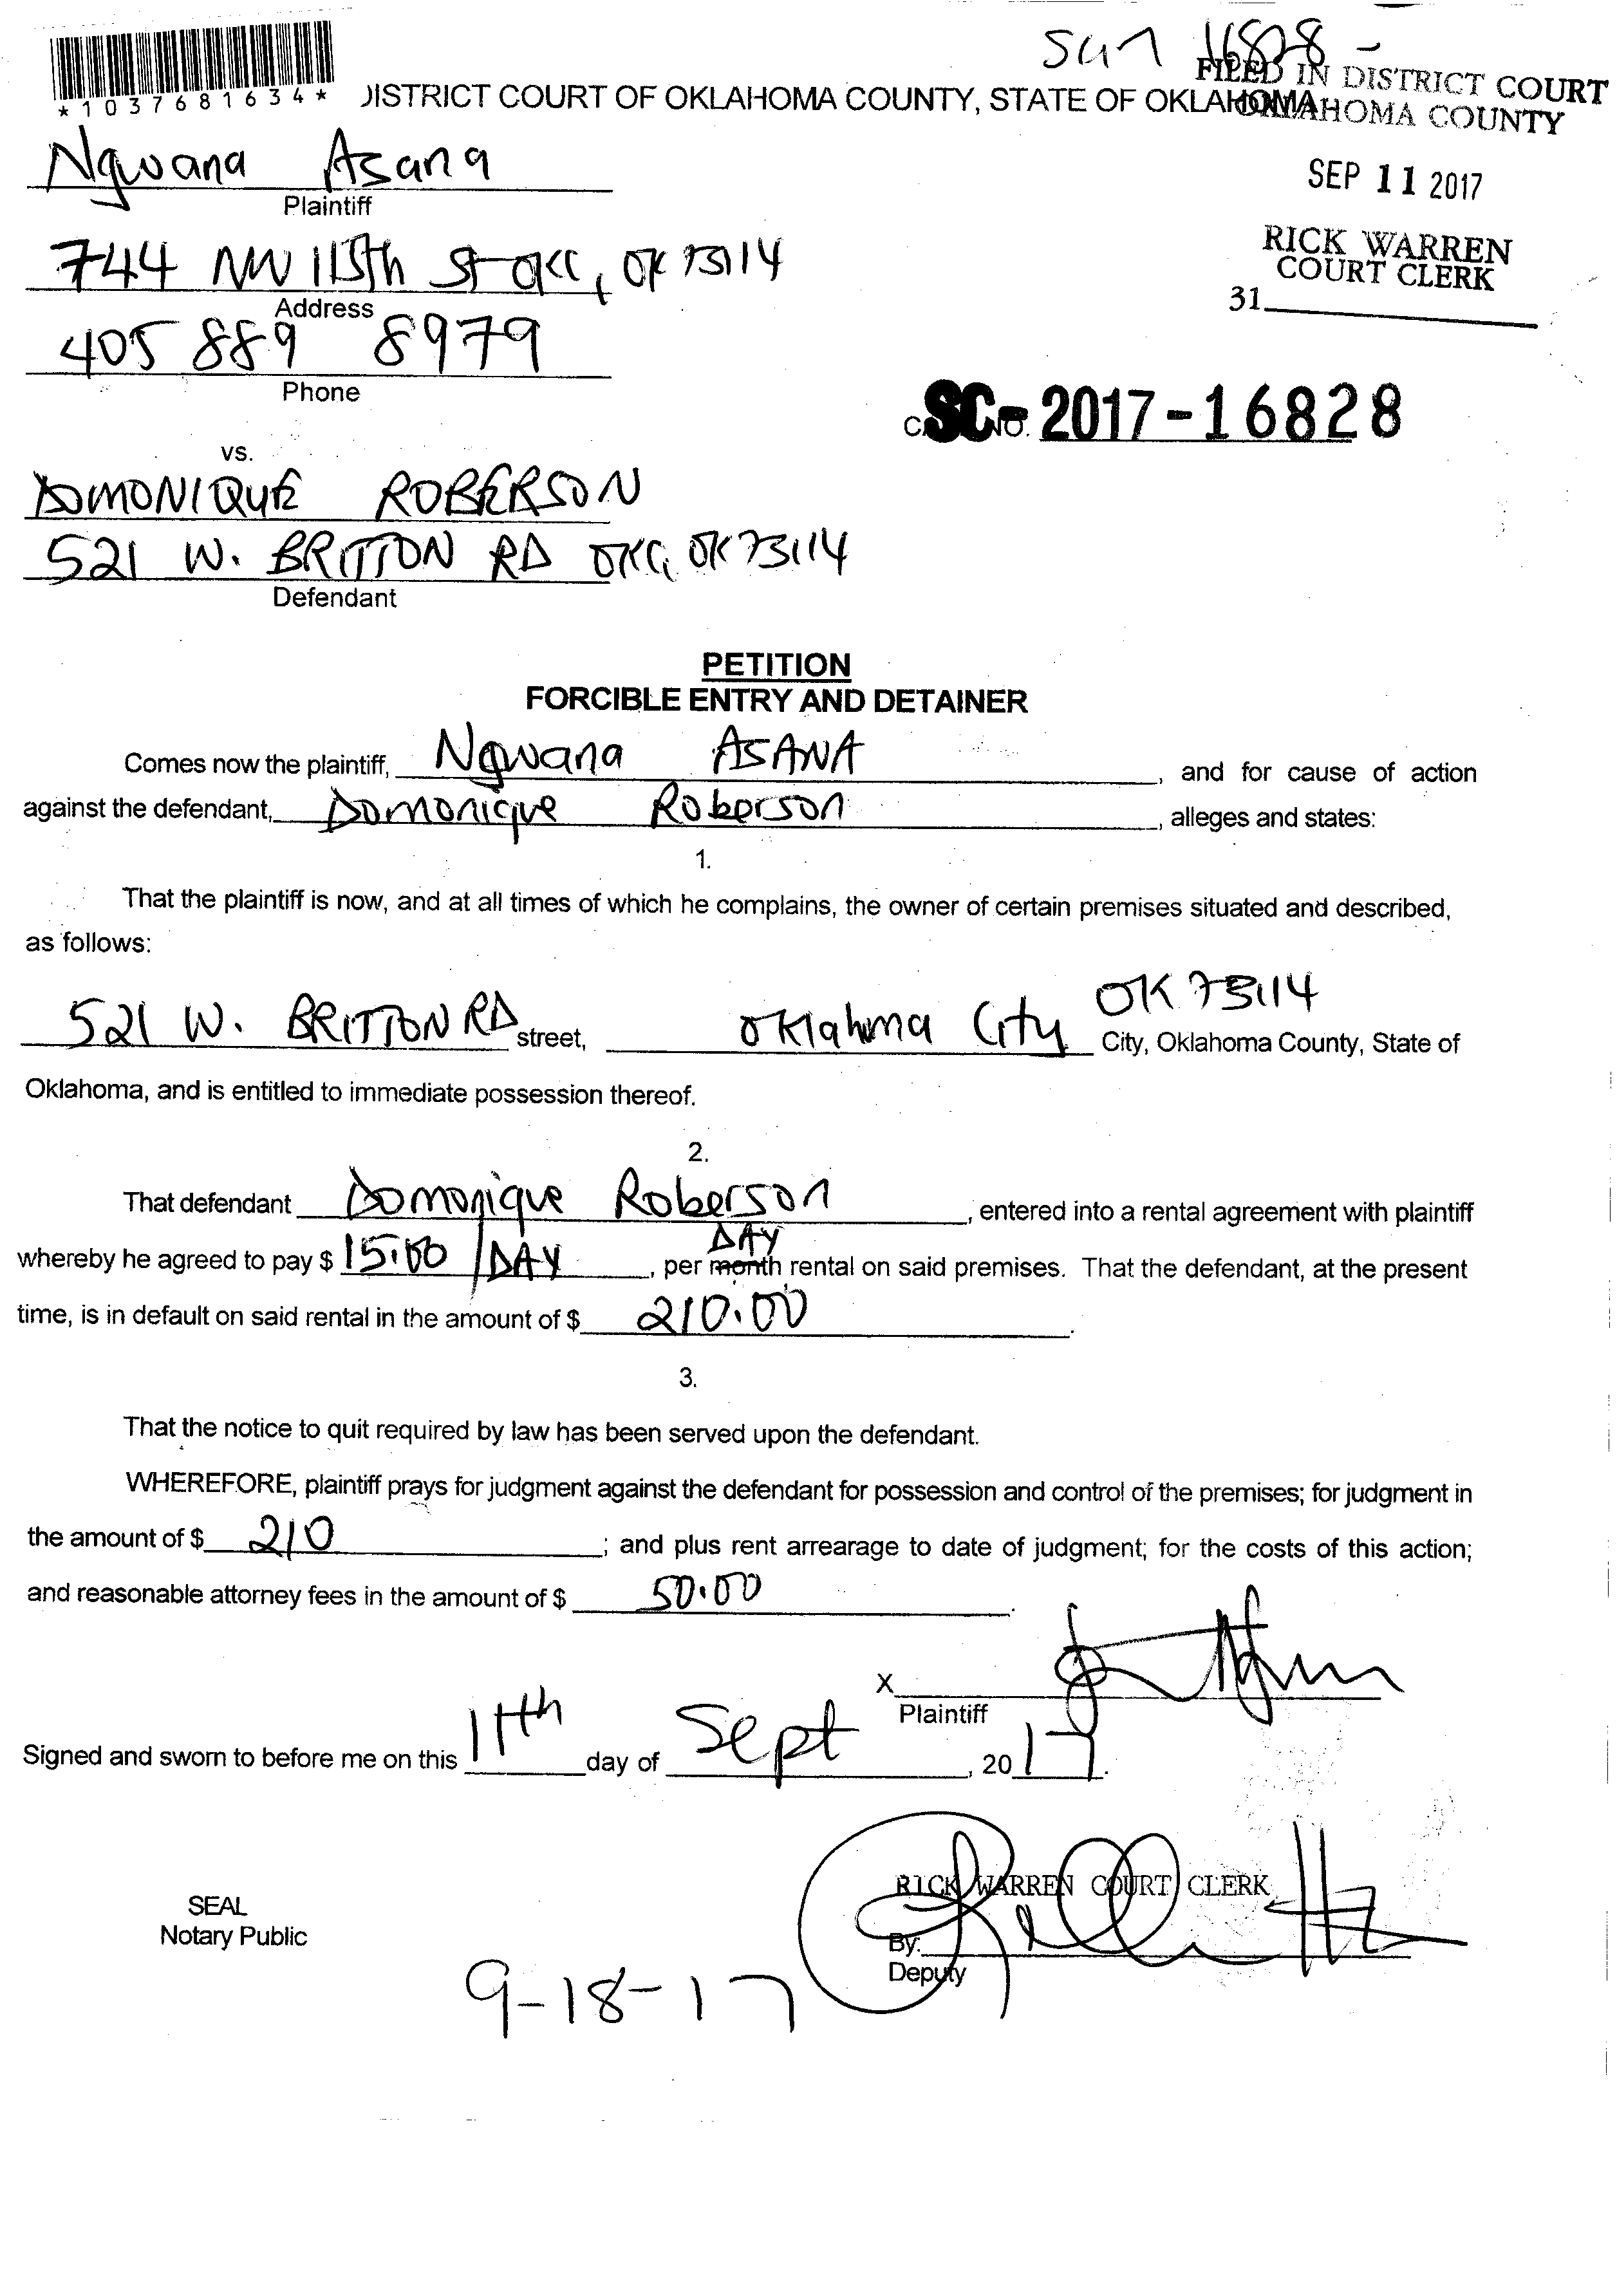 SC17 16828 -
FILED IN DISTRICT COURT
OKLAHOMA COUNTY
*1037681634*
DISTRICT COURT OF OKLAHOMA COUNTY, STATE OF OKLAHOMA
Ngwana Asana
Plaintiff
SEP 11 2017
744 NW 115th St OKC, OK 73114
Address
RICK WARREN
COURT CLERK
31
405 889 8979
Phone
SC-2017-16828
vs.
DOMONIQUE ROBERSON
521 W. BRITTON RD OKC, OK 73114
Defendant
PETITION
FORCIBLE ENTRY AND DETAINER
Comes now the plaintiff, Ngwana ASANA, and for cause of action
against the defendant, Domonique Roberson, alleges and states:
1.
That the plaintiff is now, and at all times of which he complains, the owner of certain premises situated and described,
as follows:
521 W. BRITTON RD street, Oklahoma City OK 73114 City, Oklahoma County, State of
Oklahoma, and is entitled to immediate possession thereof.
2.
That defendant Domonique Roberson, entered into a rental agreement with plaintiff
whereby he agreed to pay $ 15.00 /DAY, per month DAY rental on said premises. That the defendant, at the present
time, is in default on said rental in the amount of $ 210.00.
3.
That the notice to quit required by law has been served upon the defendant.
WHEREFORE, plaintiff prays for judgment against the defendant for possession and control of the premises; for judgment in
the amount of $ 210; and plus rent arrearage to date of judgment; for the costs of this action;
and reasonable attorney fees in the amount of $ 50.00.
X
Plaintiff
Signed and sworn to before me on this 11th day of Sept, 2017.
RICK WARREN COURT CLERK
SEAL
Notary Public
By:
Deputy
9-18-17